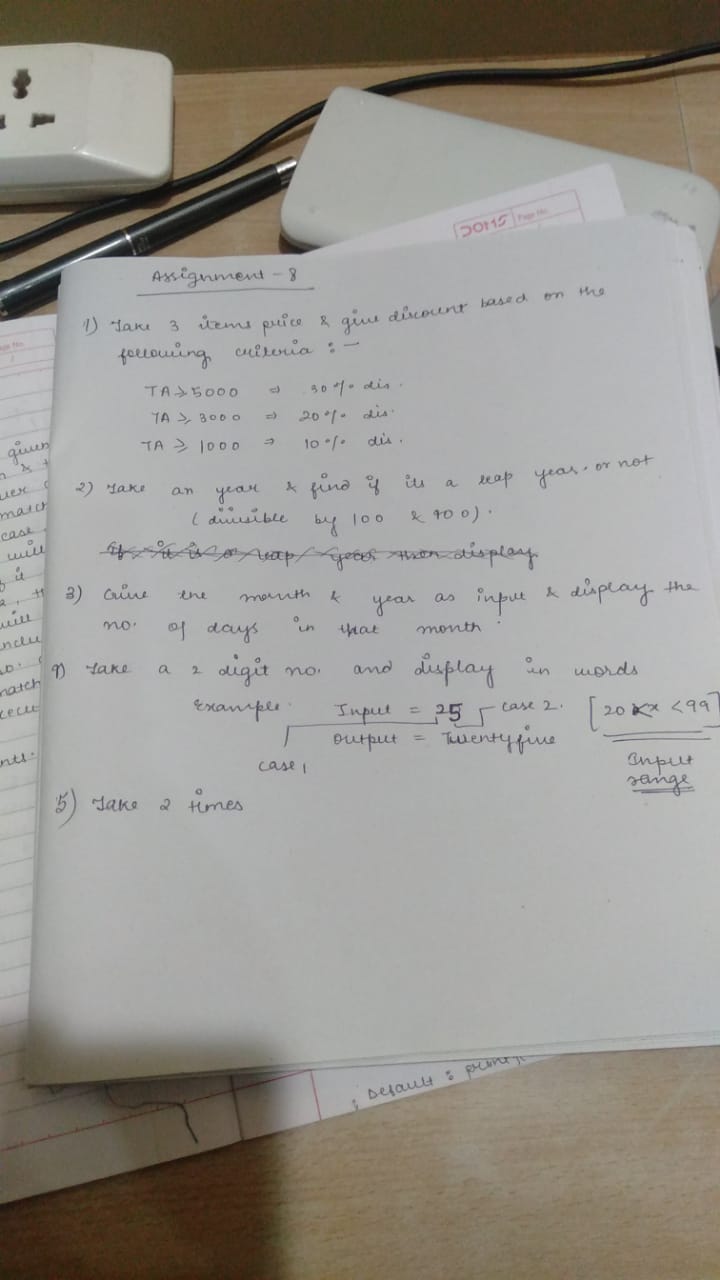 Page No.
Assignment - 8
1) Take 3 items price & give discount based on the
following criteria :-
TA ≥ 5000 ⇒ 30% dis.
TA ≥ 3000 ⇒ 20% dis.
TA ≥ 1000 ⇒ 10% dis.
2) Take an year & find if its a leap year or not
(divisible by 100 & 400).
If it is a leap year then display
3) Give the month & year as input & display the
no. of days in that month.
4) Take a 2 digit no. and display in words
Example. Input = 25 case 2. [20 < x < 99]
Output = Twentyfive
case 1
Input
range
5) Take 2 times
given
match
case
will
it
will
match
; Default : print